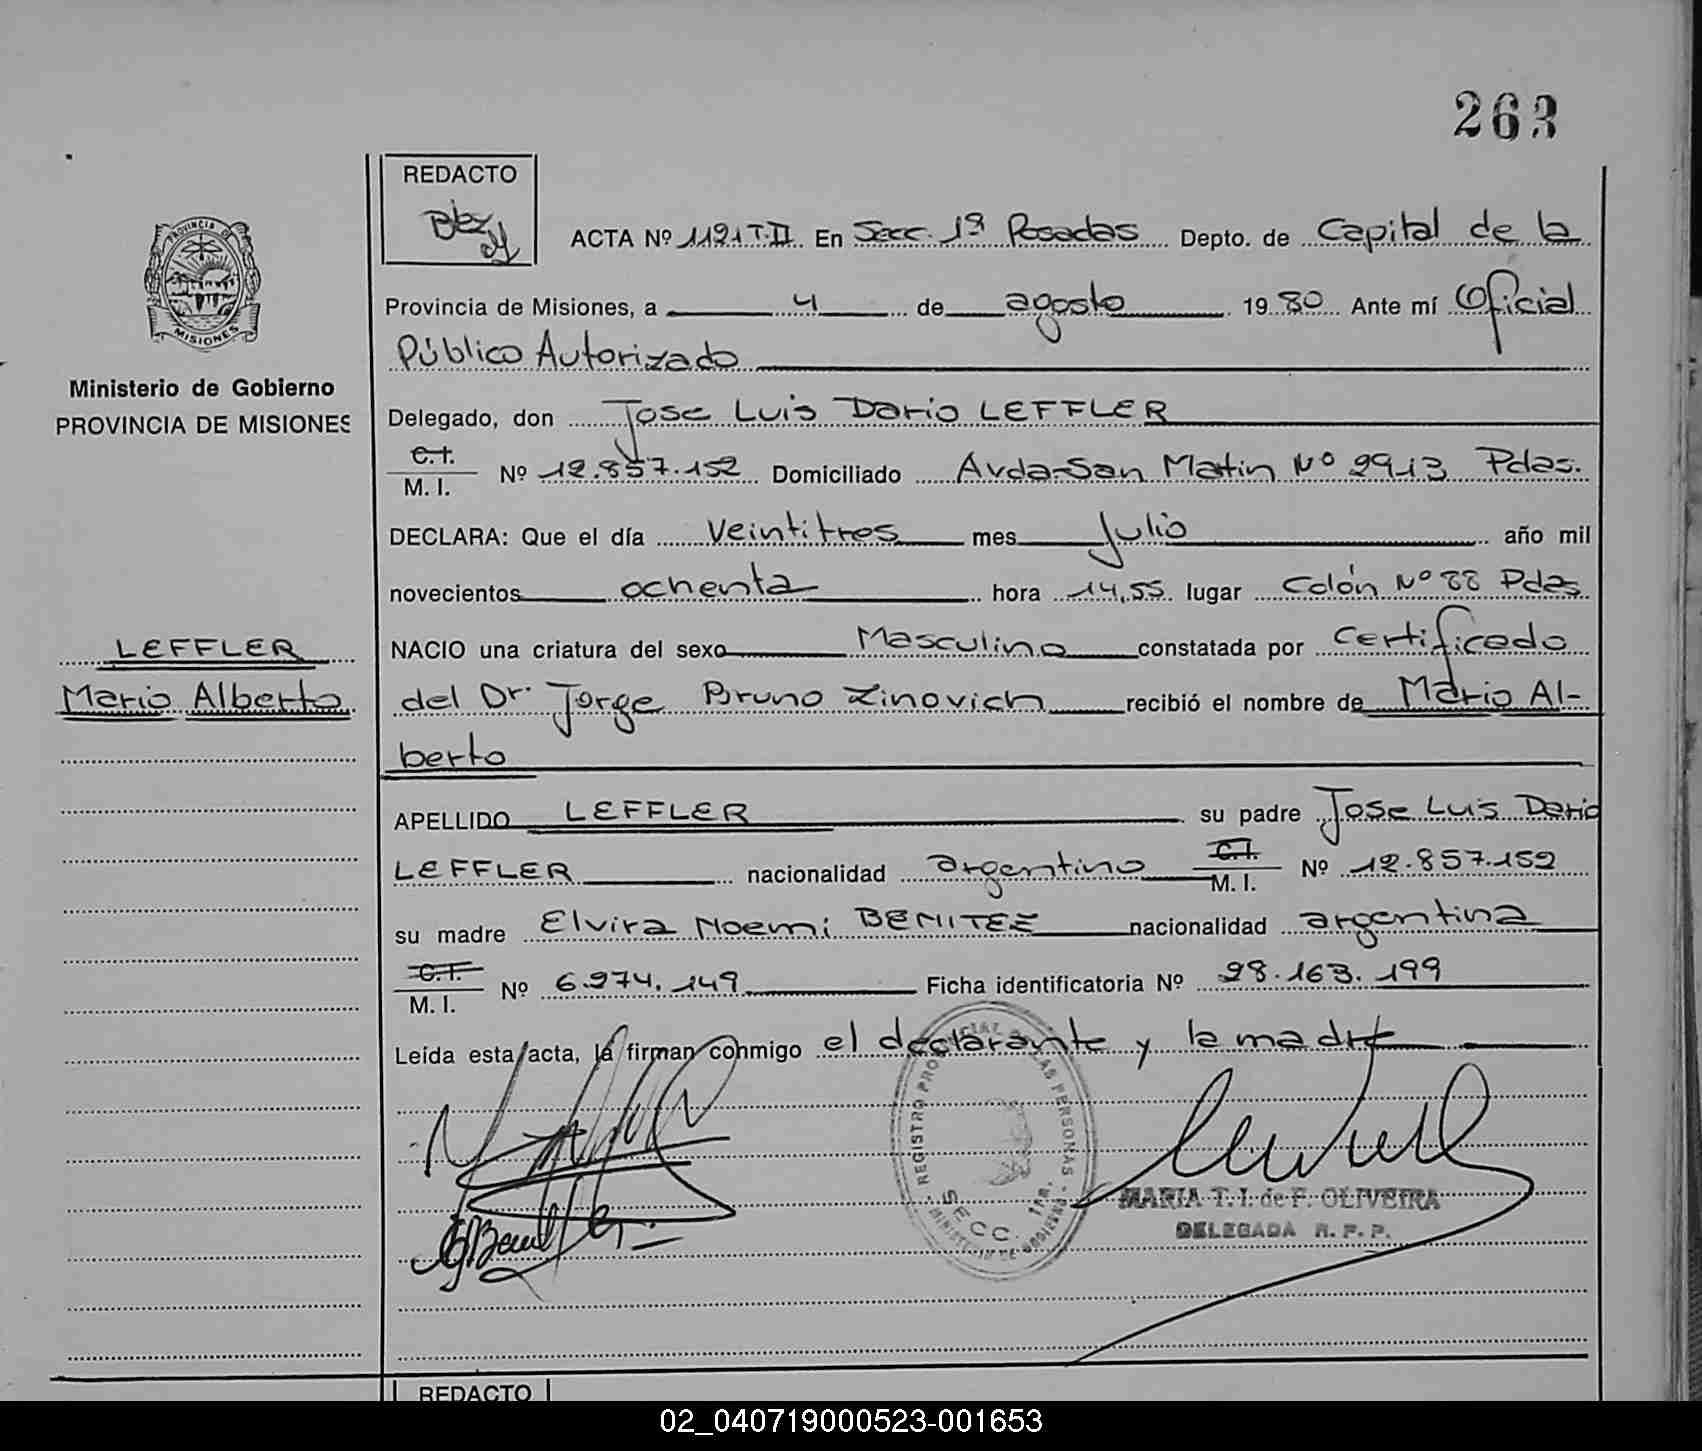 263
REDACTO
PROVINCIA DE
MISIONES
Ministerio de Gobierno
PROVINCIA DE MISIONES
ACTA Nº 1121 T.II En Secc. 1ª Posadas Depto. de Capital de la
Provincia de Misiones, a 4 de agosto 1980 Ante mí Oficial
Público Autorizado
Delegado, don Jose Luis Dario LEFFLER
C.I. M. I. Nº 12.857.152 Domiciliado Avda. San Matin Nº 2913 Pdas.
DECLARA: Que el día Veintitres mes Julio año mil
novecientos ochenta hora 14,55 lugar Colón Nº 88 Pdas
LEFFLER
Mario Alberto
NACIO una criatura del sexo Masculino constatada por Certificado
del Dr. Jorge Bruno Zinovich recibió el nombre de Mario Al-
berto
APELLIDO LEFFLER su padre Jose Luis Dario
LEFFLER nacionalidad argentino C.I. M. I. Nº 12.857.152
su madre Elvira Noemi BENITEZ nacionalidad argentina
C.I. M. I. Nº 6.274.149 Ficha identificatoria Nº 28.163.199
Leída esta acta, la firman conmigo el declarante y la madre
REGISTRO PROVINCIAL DE LAS PERSONAS
SECC. 1ra.
MINISTERIO DE GOBIERNO
MARIA T. I. de F. OLIVEIRA
DELEGADA R. P. P.
REDACTO
02_040719000523-001653